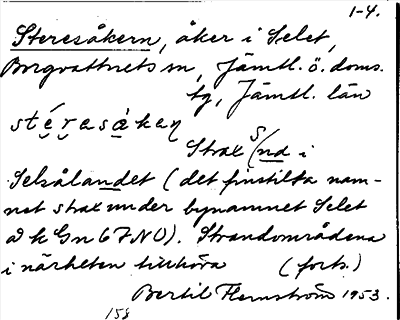 1-4.
Steresåkern, åker i Selet,
Borgvattnets sn, Jämtl. ö. doms.
tg, Jämtl. län
stérasàkaṇ
Strax S/nd i
Selsålandet (det finstilta nam-
net strax under bynamnet Selet
å k Gn 67NO). Strandområdena
i närheten tillhöra (forts.)
Bertil Flemström 1953.
158